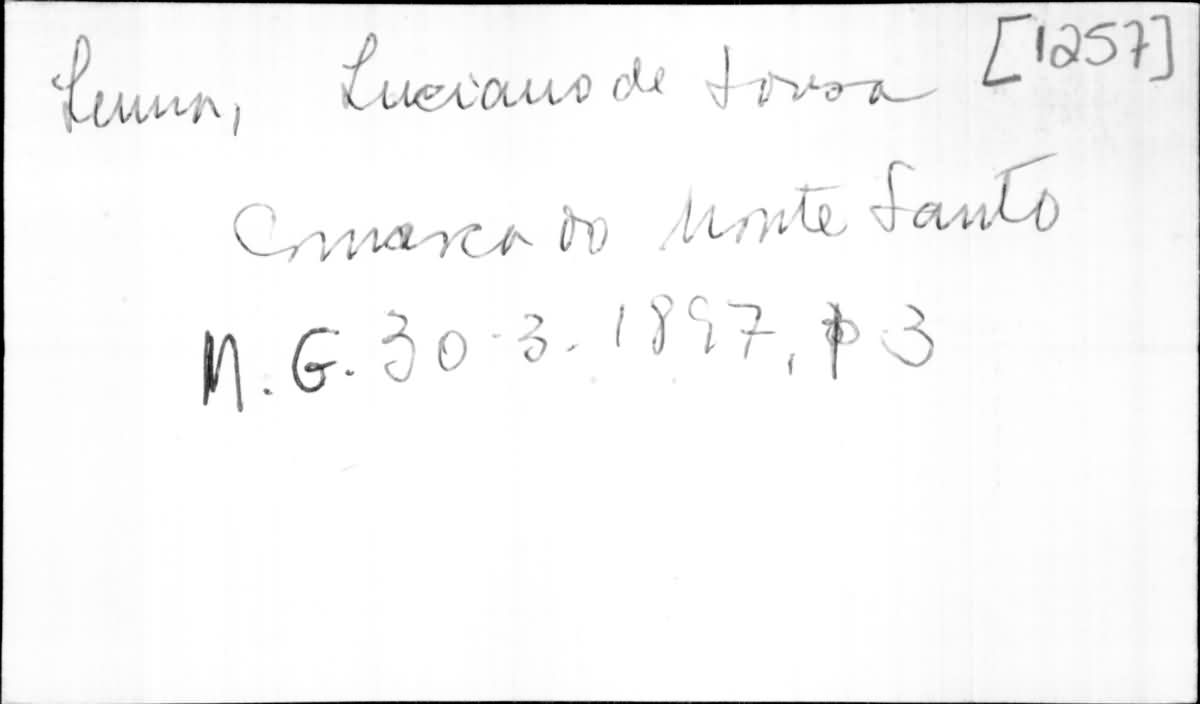 Lemma, Luciano de Sousa [1257]
Comarca do Monte Santo
M. G. 30-3-1897, p 3